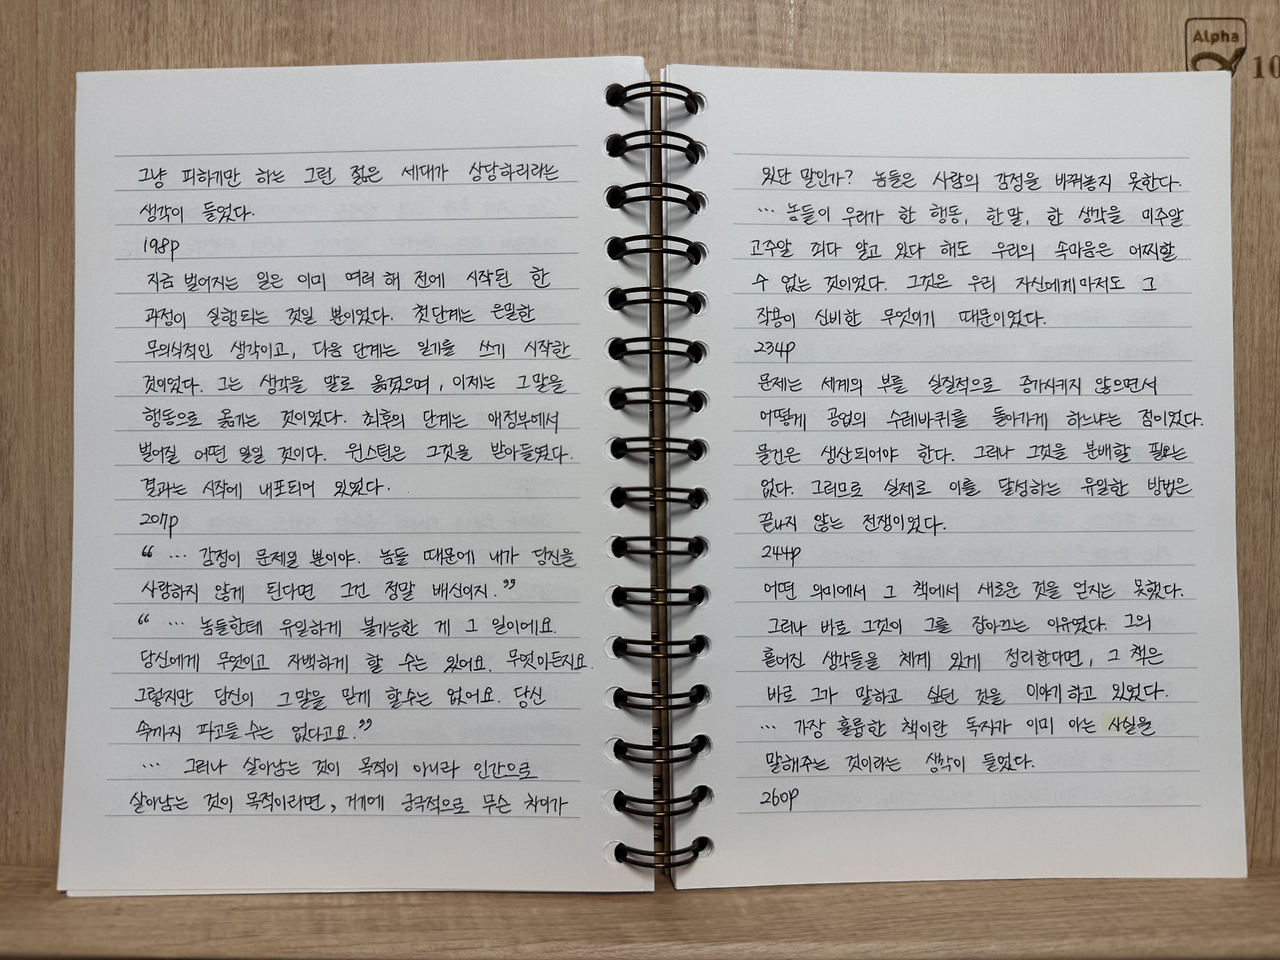 그냥 피하기만 하는 그런 젊은 세대가 상당하리라는
생각이 들었다.
198p
지금 벌어지는 일은 이미 여러 해 전에 시작된 한
과정이 실행되는 것일 뿐이었다. 첫단계는 은밀한
무의식적인 생각이고, 다음 단계는 일기를 쓰기 시작한
것이었다. 그는 생각을 말로 옮겼으며, 이제는 그말을
행동으로 옮기는 것이었다. 최후의 단계는 애정부에서
벌어질 어떤 일일 것이다. 윈스턴은 그것을 받아들였다.
결과는 시작에 내포되어 있었다.
207p
“ … 감정이 문제일 뿐이야. 놈들 때문에 내가 당신을
사랑하지 않게 된다면 그건 정말 배신이지.”
“ … 놈들한테 유일하게 불가능한 게 그 일이에요.
당신에게 무엇이고 자백하게 할 수는 있어요. 무엇이든지요.
그렇지만 당신이 그말을 믿게 할수는 없어요. 당신
속까지 파고들 수는 없다고요.”
… 그러나 살아남는 것이 목적이 아니라 인간으로
살아남는 것이 목적이라면, 거기에 궁극적으로 무슨 차이가
있단 말인가? 놈들은 사람의 감정을 바꿔놓지 못한다.
… 놈들이 우리가 한 행동, 한말, 한 생각을 미주알
고주알 죄다 알고 있다 해도 우리의 속마음은 어찌할
수 없는 것이었다. 그것은 우리 자신에게마저도 그
작용이 신비한 무엇이기 때문이었다.
234p
문제는 세계의 부를 실질적으로 증가시키지 않으면서
어떻게 공업의 수레바퀴를 돌아가게 하느냐는 점이었다.
물건은 생산되어야 한다. 그러나 그것을 분배할 필요는
없다. 그러므로 실제로 이를 달성하는 유일한 방법은
끝나지 않는 전쟁이었다.
244p
어떤 의미에서 그 책에서 새로운 것을 얻지는 못했다.
그러나 바로 그것이 그를 잡아끄는 이유였다. 그의
흩어진 생각들을 체계 있게 정리한다면, 그 책은
바로 그가 말하고 싶던 것을 이야기하고 있었다.
… 가장 훌륭한 책이란 독자가 이미 아는 사실을
말해주는 것이라는 생각이 들었다.
260p
Alpha
10